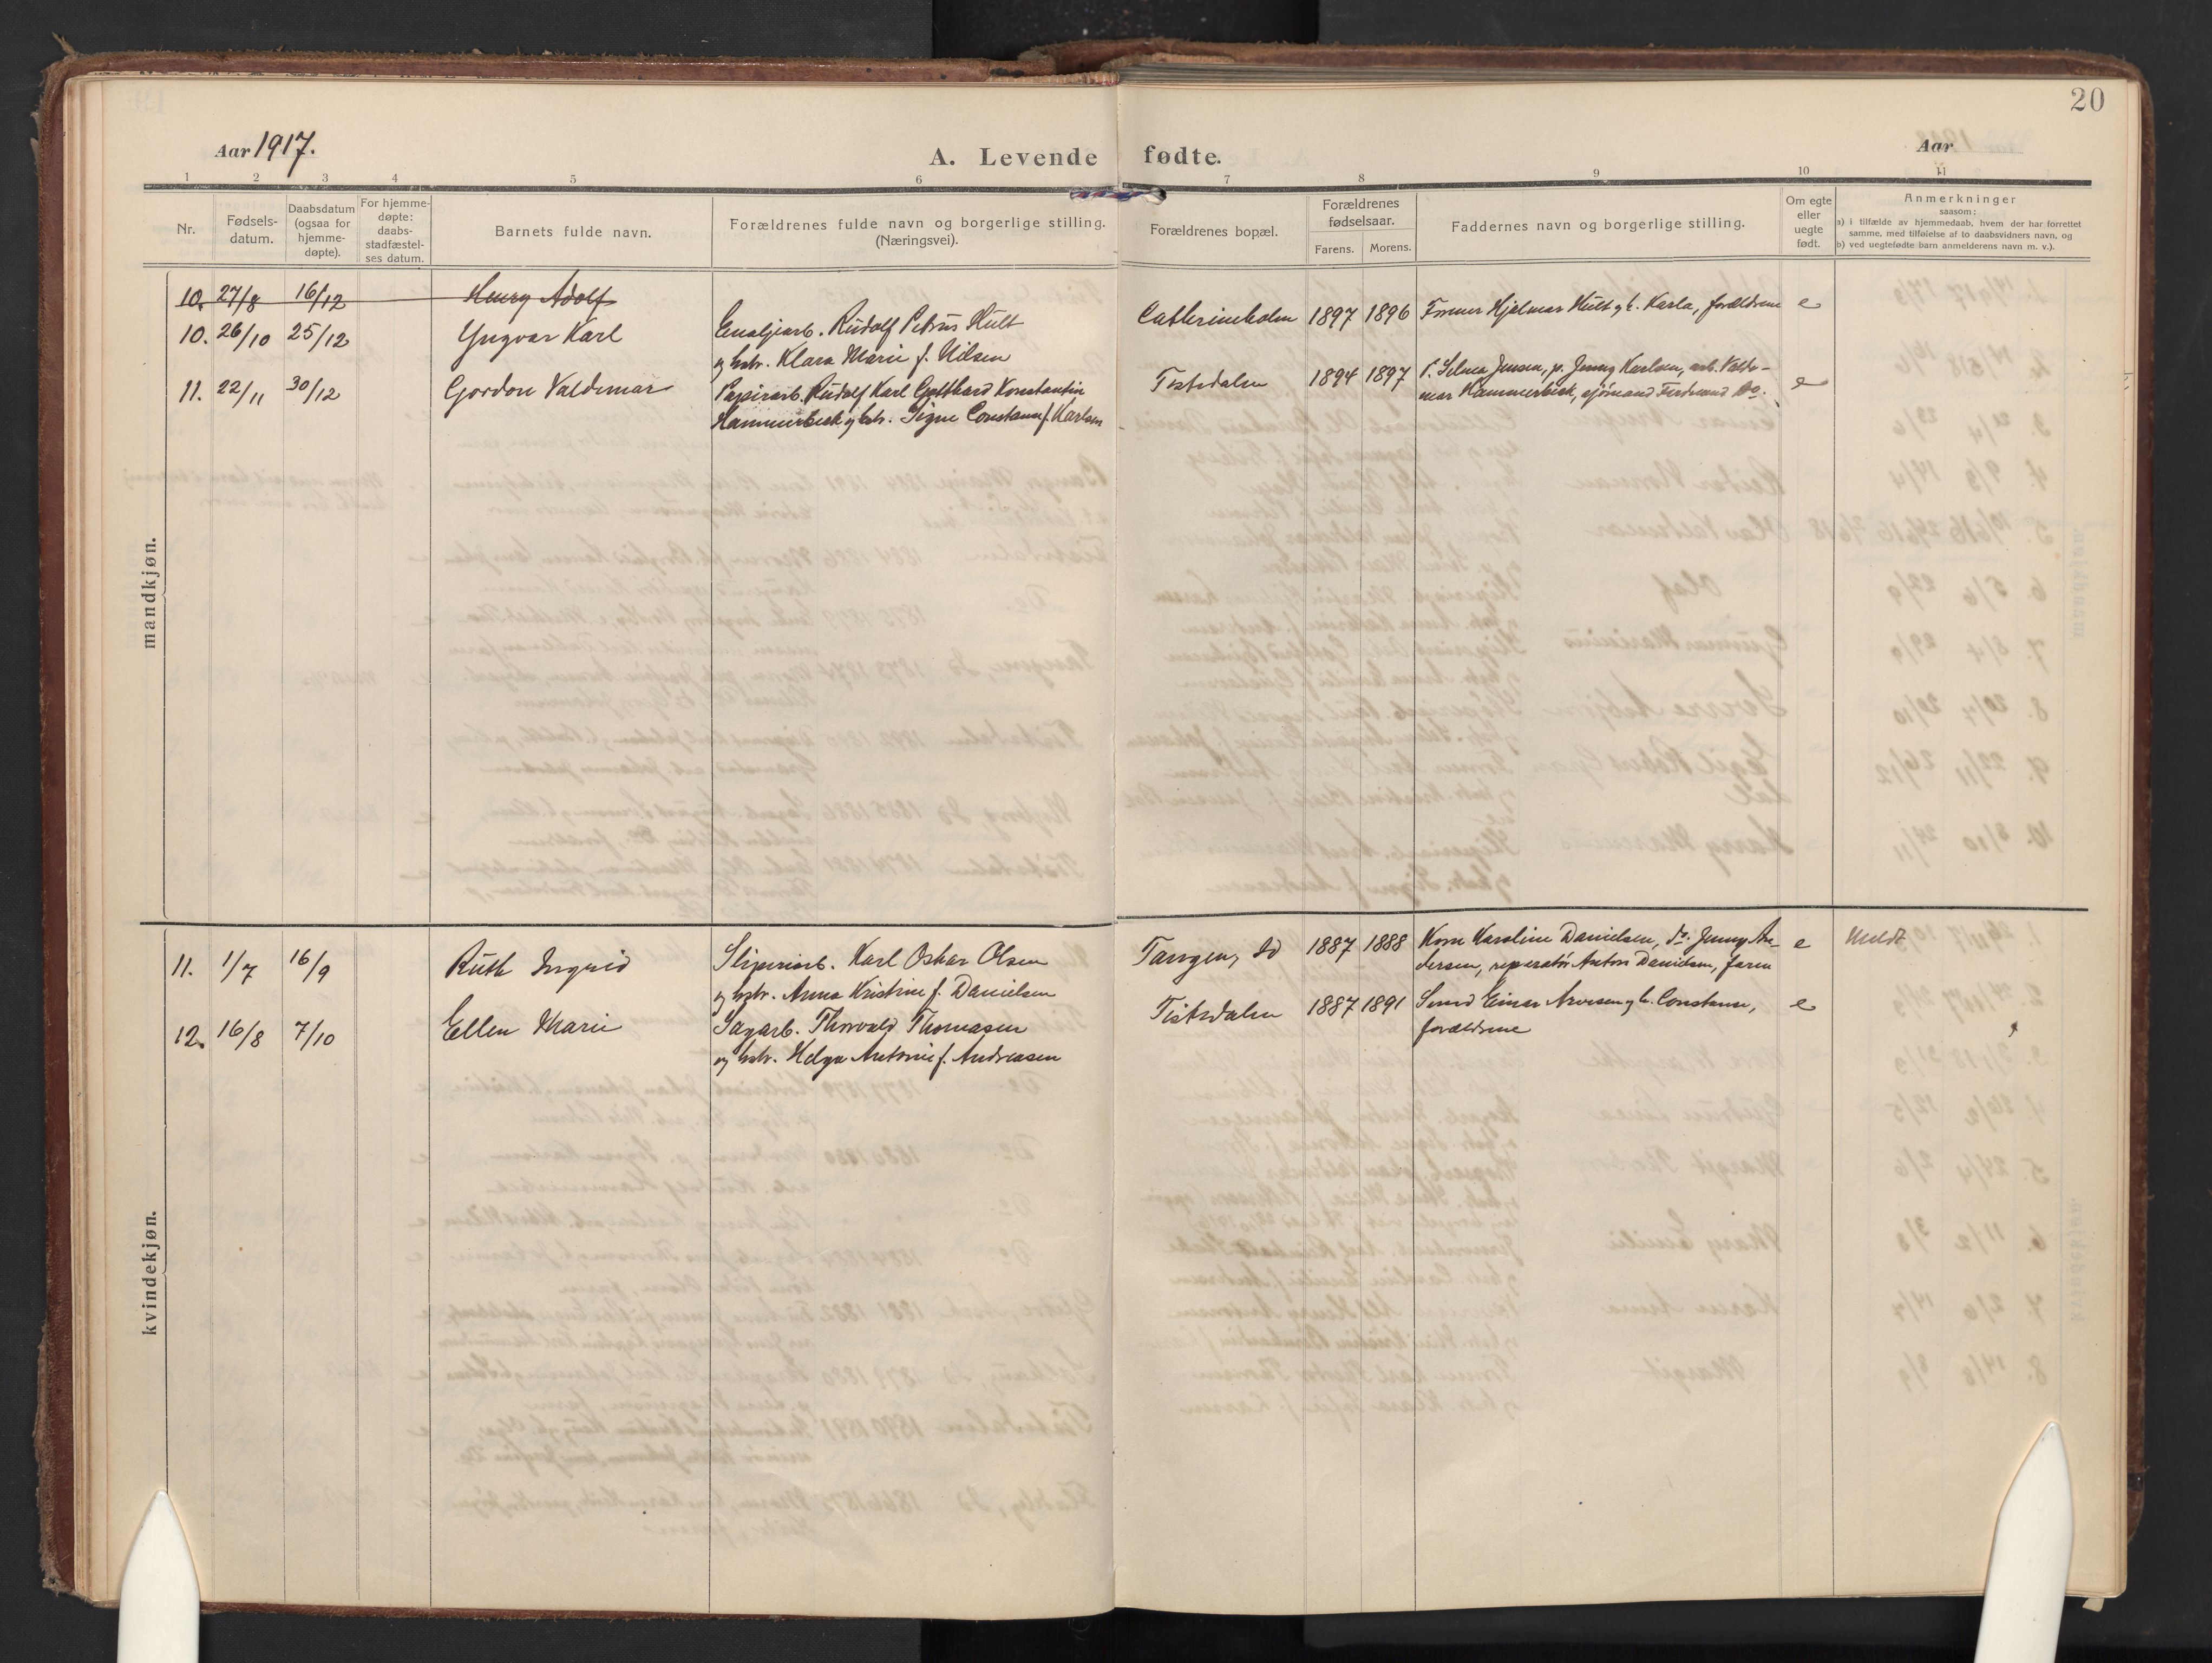 20
Aar 1917.
A. Levende fødte.
Aar
1 2 3 4 5 6 7 8 9 10 11
Nr.
Fødsels-
datum.
Daabsdatum
(ogsaa for
hjemme-
døpte).
For hjemme-
døpte:
daabs-
stadfæstel-
ses datum.
Barnets fulde navn.
Forældrenes fulde navn og borgerlige stilling.
(Næringsvei).
Forældrenes bopæl.
Forældrenes
fødselsaar.
Farens. Morens.
Faddernes navn og borgerlige stilling.
Om egte
eller
uegte
født.
Anmerkninger
saasom:
a) i tilfælde av hjemmedaab, hvem der har forrettet
samme, med tilføielse af to daabsvidners navn, og
b) ved uegtefødte barn anmelderens navn m. v.).
mandkjøn.
10. 27/8 16/12 Henry Adolf
10. 26/10 25/12 Yngvar Karl Emaljearb. Rudolf Petrus Hult Catherineholm 1897 1896 Former Hjalmar Hult og h. Karla, forældrene e
og hstr. Klara Marie f. Nilsen
11. 22/11 30/12 Gordon Valdemar Papirarb. Rudolf Karl Gotthard Konstantin Tistedalen 1894 1897 Selma Jensen, p. Jenny Karlsen, arb. Valde- e
Hammerbeck og hstr. Signe Constanse f. Karlsen mar Hammerbeck, sjömand Ferdinand Do.
kvindekjøn.
11. 1/7 16/9 Ruth Ingrid Sliperiarb. Karl Oskar Olsen Tangen, Id 1887 1888 Kone Karoline Danielsen, do. Jenny An- e Meldt
og hstr. Anna Kristine f. Danielsen dersen, reparatör Anton Danielsen, faren
12. 16/8 7/10 Ellen Marie Sagarb. Thorvald Thomasen Tistedalen 1887 1891 Smed Einar Arvesen og h. Constanse, e
og hstr. Helga Antonie f. Andreasen forældrene